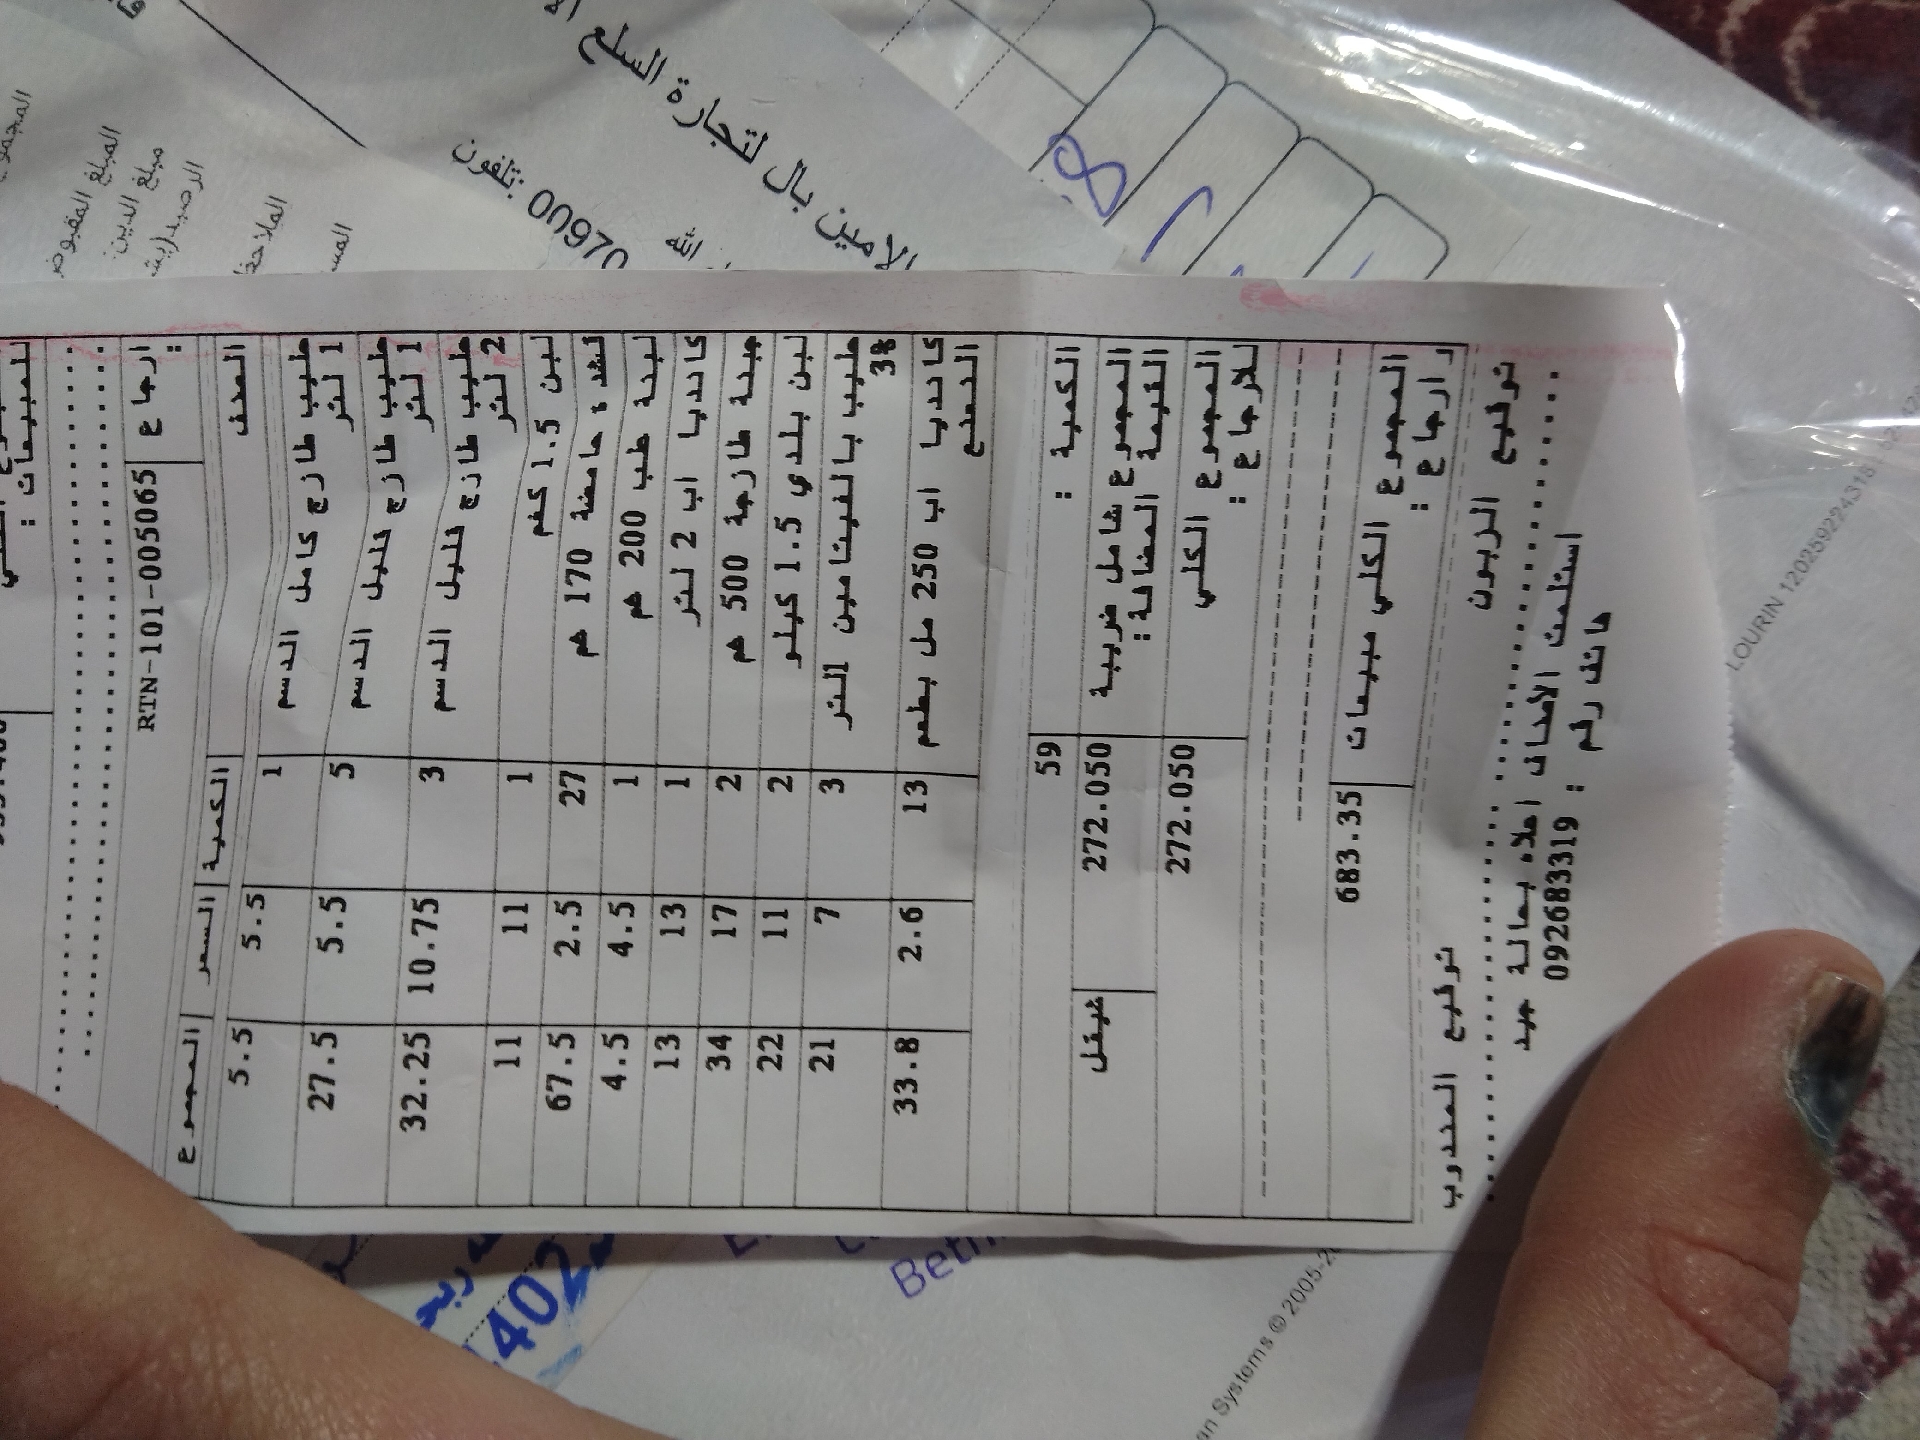 للمبيعات :
ارجاع : RTN-101-005065
الصنف الكمية السعر المجموع
حليب طازج كامل الدسم 1 لتر 1 5.5 5.5
حليب طازج قليل الدسم 1 لتر 5 5.5 27.5
حليب طازج قليل الدسم 2 لتر 3 10.75 32.25
لبن 1.5 كغم 1 11 11
قشدة حامضة 170 غم 27 2.5 67.5
لبنة طب 200 غم 1 4.5 4.5
كانديا اب 2 لتر 1 13 13
جبنة طازجة 500 غم 2 17 34
لبن بلدي 1.5 كيلو 2 11 22
حليب بالفيتامين التر 3% 3 7 21
كانديا اب 250 مل بطعم النعنع 13 2.6 33.8
الكمية : 59
المجموع شامل ضريبة القيمة المضافة : 272.050 شيقل
المجموع الكلي للارجاع : 272.050
المجموع الكلي مبيعات و ارجاع : 683.35
توقيع الزبون
توقيع المندوب
استلمت الأصناف اعلاه بحالة جيد
هاتف رقم : 092683319
الامين بال لتجارة السلع
تلفون: 00970
الله
المبلغ المقبوض
مبلغ الدين:
LOURIN
Systems © 2005-2
402